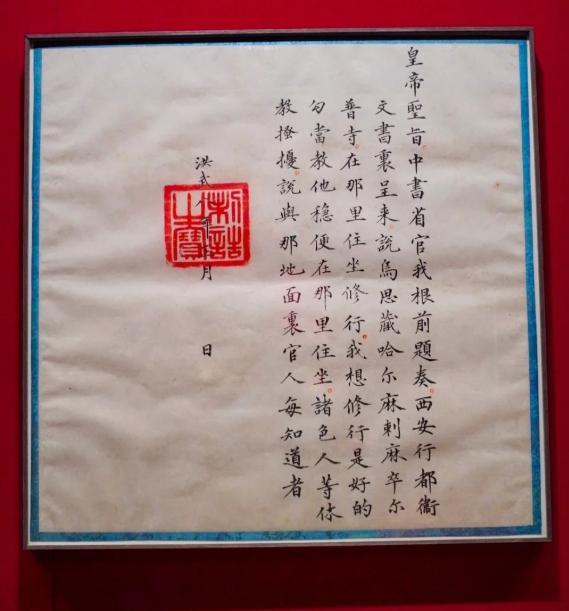 皇帝聖旨。中書省官我根前題奏。西安行都衞
文書裏呈来。說烏思藏哈尔麻剌麻卒尔
普寺。在那里住坐修行。我想修行是好的
勾當教他穩便在那里住坐。諸色人等休
教搔擾。說與那地面裏官人每知道者
洪武八年 月 日
制誥之寶